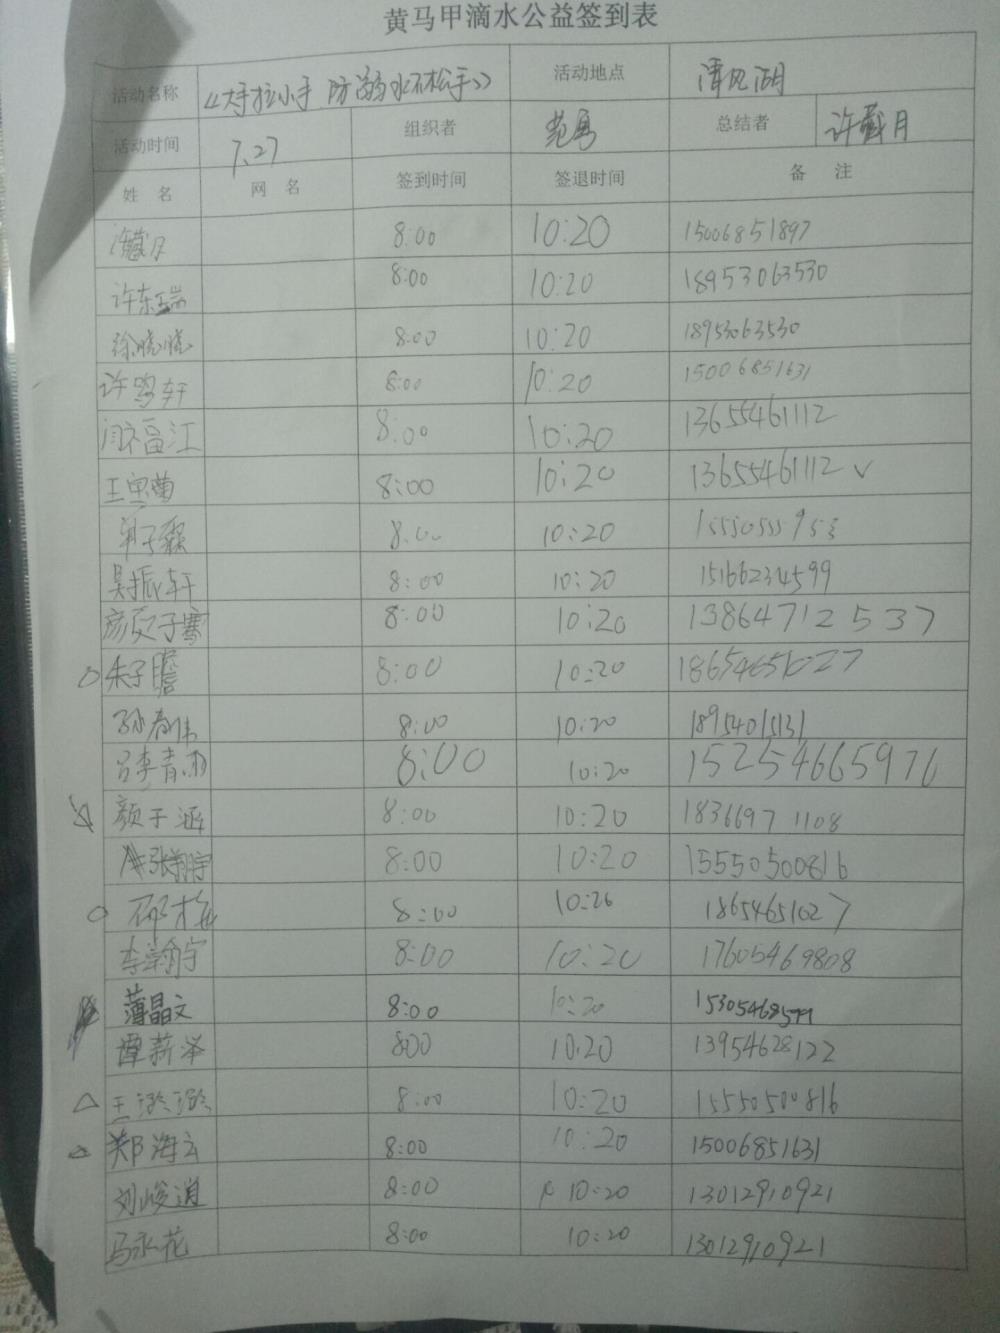 黄马甲滴水公益签到表
活动名称 《大手拉小手 防溺水不松手》 活动地点 清风湖
活动时间 7.27 组织者 范勇 总结者 许戴月
姓 名 网 名 签到时间 签退时间 备 注
8:00 10:20 15006851897
许东瑞 8:00 10:20 18953063530
徐晓晓 8:00 10:20 18953063530
许鸣轩 8:00 10:20 15006851631
闫福江 8:00 10:20 13655461112
王思菊 8:00 10:20 13655461112 √
8:00 10:20
吴振轩 8:00 10:20 15166234599
颜子骞 8:00 10:20 13864712537
朱子瞻 8:00 10:20 18654651027
孙春伟 8:00 10:20 18954015131
吕李青雨 8:00 10:20 15254665976
颜子涵 8:00 10:20 18366971108
张翔宇 8:00 10:20 15550500816
邵梅 8:00 10:20 18654651027
李瀚宇 8:00 10:20 17605469808
薄晶文 8:00 10:20 15305468599
谭薪泽 800 10:20 13954628122
王璐璐 8:00 10:20 15550500816
郑海云 8:00 10:20 15006851631
刘峻逍 8:00 10:20 13012910921
马永花 8:00 10:20 13012910921